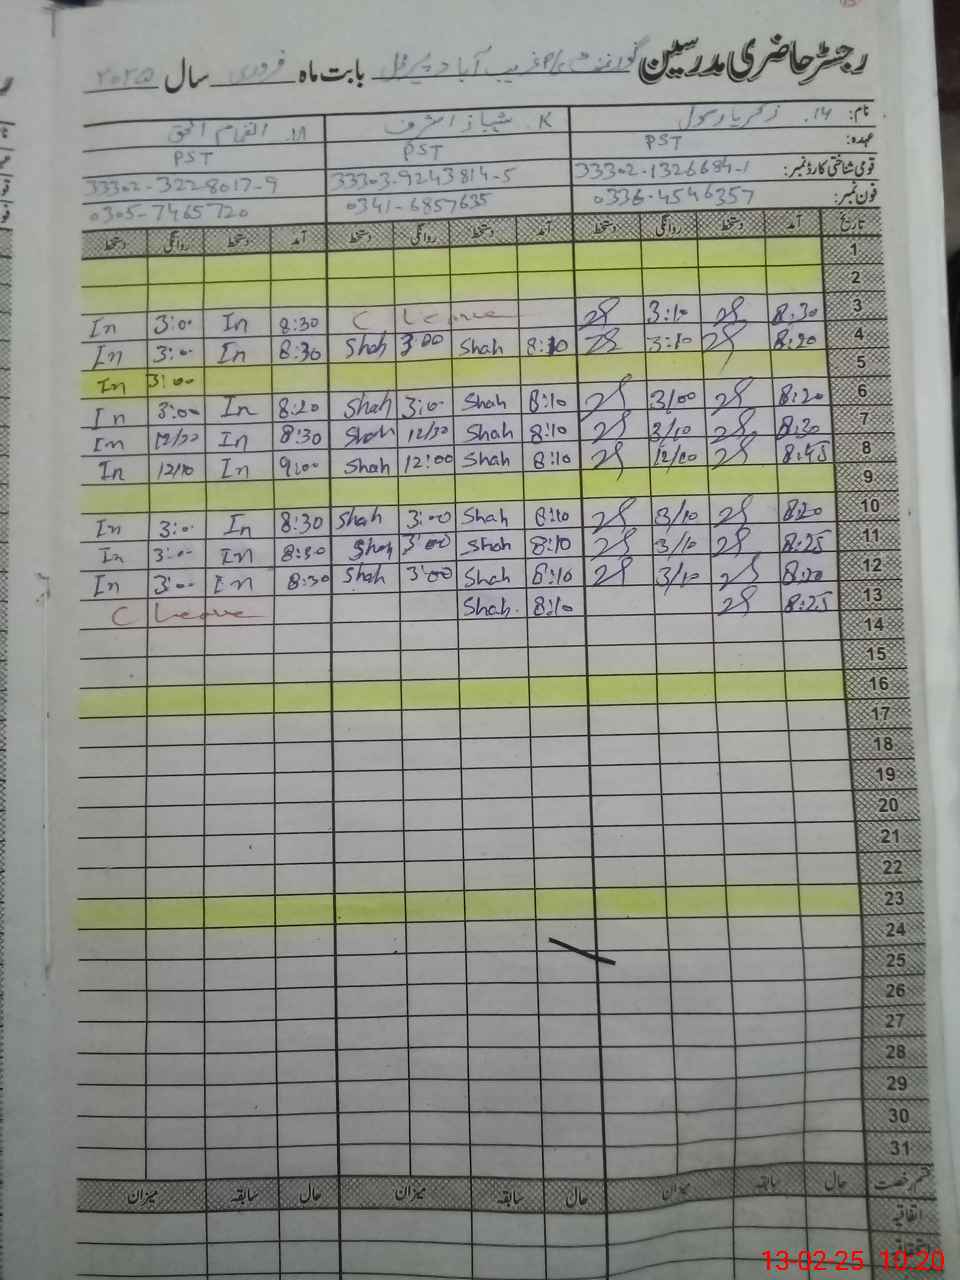 رجسٹر حاضری مدرسین گورنمنٹ غریب آباد پیر محل بابت ماہ فروری سال ۲۰۲۵
نام: .14 زکریا رسول .K شہباز اشرف .M انعام الحق
عہدہ: PST PST PST
قومی شناختی کارڈ نمبر: 33302-1326684-1 33303-9243814-5 33302-3228017-9
فون نمبر: 0336-4546357 0341-6857635 0305-7465720
تاریخ آمد دستخط روانگی دستخط آمد دستخط روانگی دستخط آمد دستخط روانگی دستخط
1
2
3 8:30 3:10 C Leave 8:30 In 3:00 In
4 8:20 3:10 8:10 Shah 3:00 Shah 8:30 In 3:00 In
5 3:00 In
6 8:20 3/00 8:10 Shah 3:00 Shah 8:20 In 3:00 In
7 8:30 3/10 8:10 Shah 12/30 Shah 8:30 In 12/30 In
8 8:45 12/10 8:10 Shah 12:00 Shah 9:00 In 12/10 In
9
10 8:20 3/10 8:10 Shah 3:00 Shah 8:30 In 3:00 In
11 8:25 3/10 8:10 Shah 3:00 Shah 8:30 In 3:00 In
12 8:20 3/10 8:10 Shah 3:00 Shah 8:30 In 3:00 In
13 8:25 8:10 Shah C Leave
14
15
16
17
18
19
20
21
22
23
24
25
26
27
28
29
30
31
قسم رخصت حال سابقہ میزان حال سابقہ میزان حال سابقہ میزان
اتفاقیہ
13-02-25 10:20